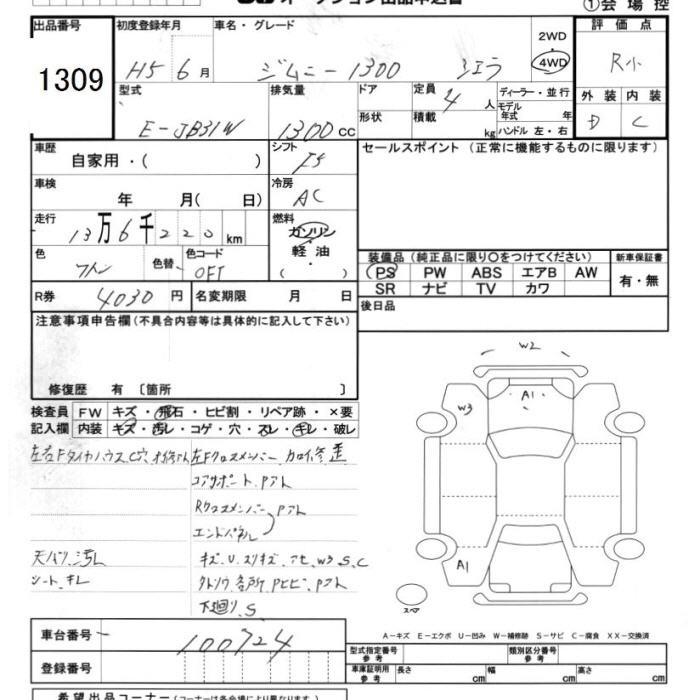 ①会 場 控
出品番号 初度登録年月 車名・グレード 評 価 点
2WD
H5 6 月 ジムニー1300 シエラ 4WD R小
1309
型式 排気量 ドア 定員 4 人 ディーラー・並 行 外 装 内 装
モデル
年式 年
E-JB31W 1300 cc 形状 積載 kg ハンドル 左・右 D C
車歴 シフト セールスポイント (正常に機能するものに限ります)
自家用・( ) F5
車検 冷房
年 月( 日) AC
走行 燃料
13 万 6 千 220 km ガソリン
軽 油
色 色替 色コード
装備品 (純正品に限り○をつけてください) 新車保証書
PS PW ABS エアB AW 有・無
SR ナビ TV カワ
R券 4030 円 名変期限 月 日 後日品
注意事項申告欄 (不具合内容等は具体的に記入して下さい)
修復歴 有 〔箇所 〕
検査員 FW キズ・飛石・ヒビ割・リペア跡・×要
記入欄 内装 キズ・汚レ・コゲ・穴・スレ・キレ・破レ
W2
A1
W3
コアサポート、Pアト
Rクロスメンバー、Pアト
エンドパネル
天バリ汚レ キズ、U、スリキズ、アセ、W3 S、C
シート、キレ
下廻り、S
A1
スペア
A-キズ E-エクボ U-凹み W-補修跡 S-サビ C-腐食 XX-交換済
車台番号 100724
型式指定番号 類別区分番号
参 考 参 考
登録番号 車庫証明用 長さ 幅 高さ
参 考 cm cm cm
希望出品コーナー